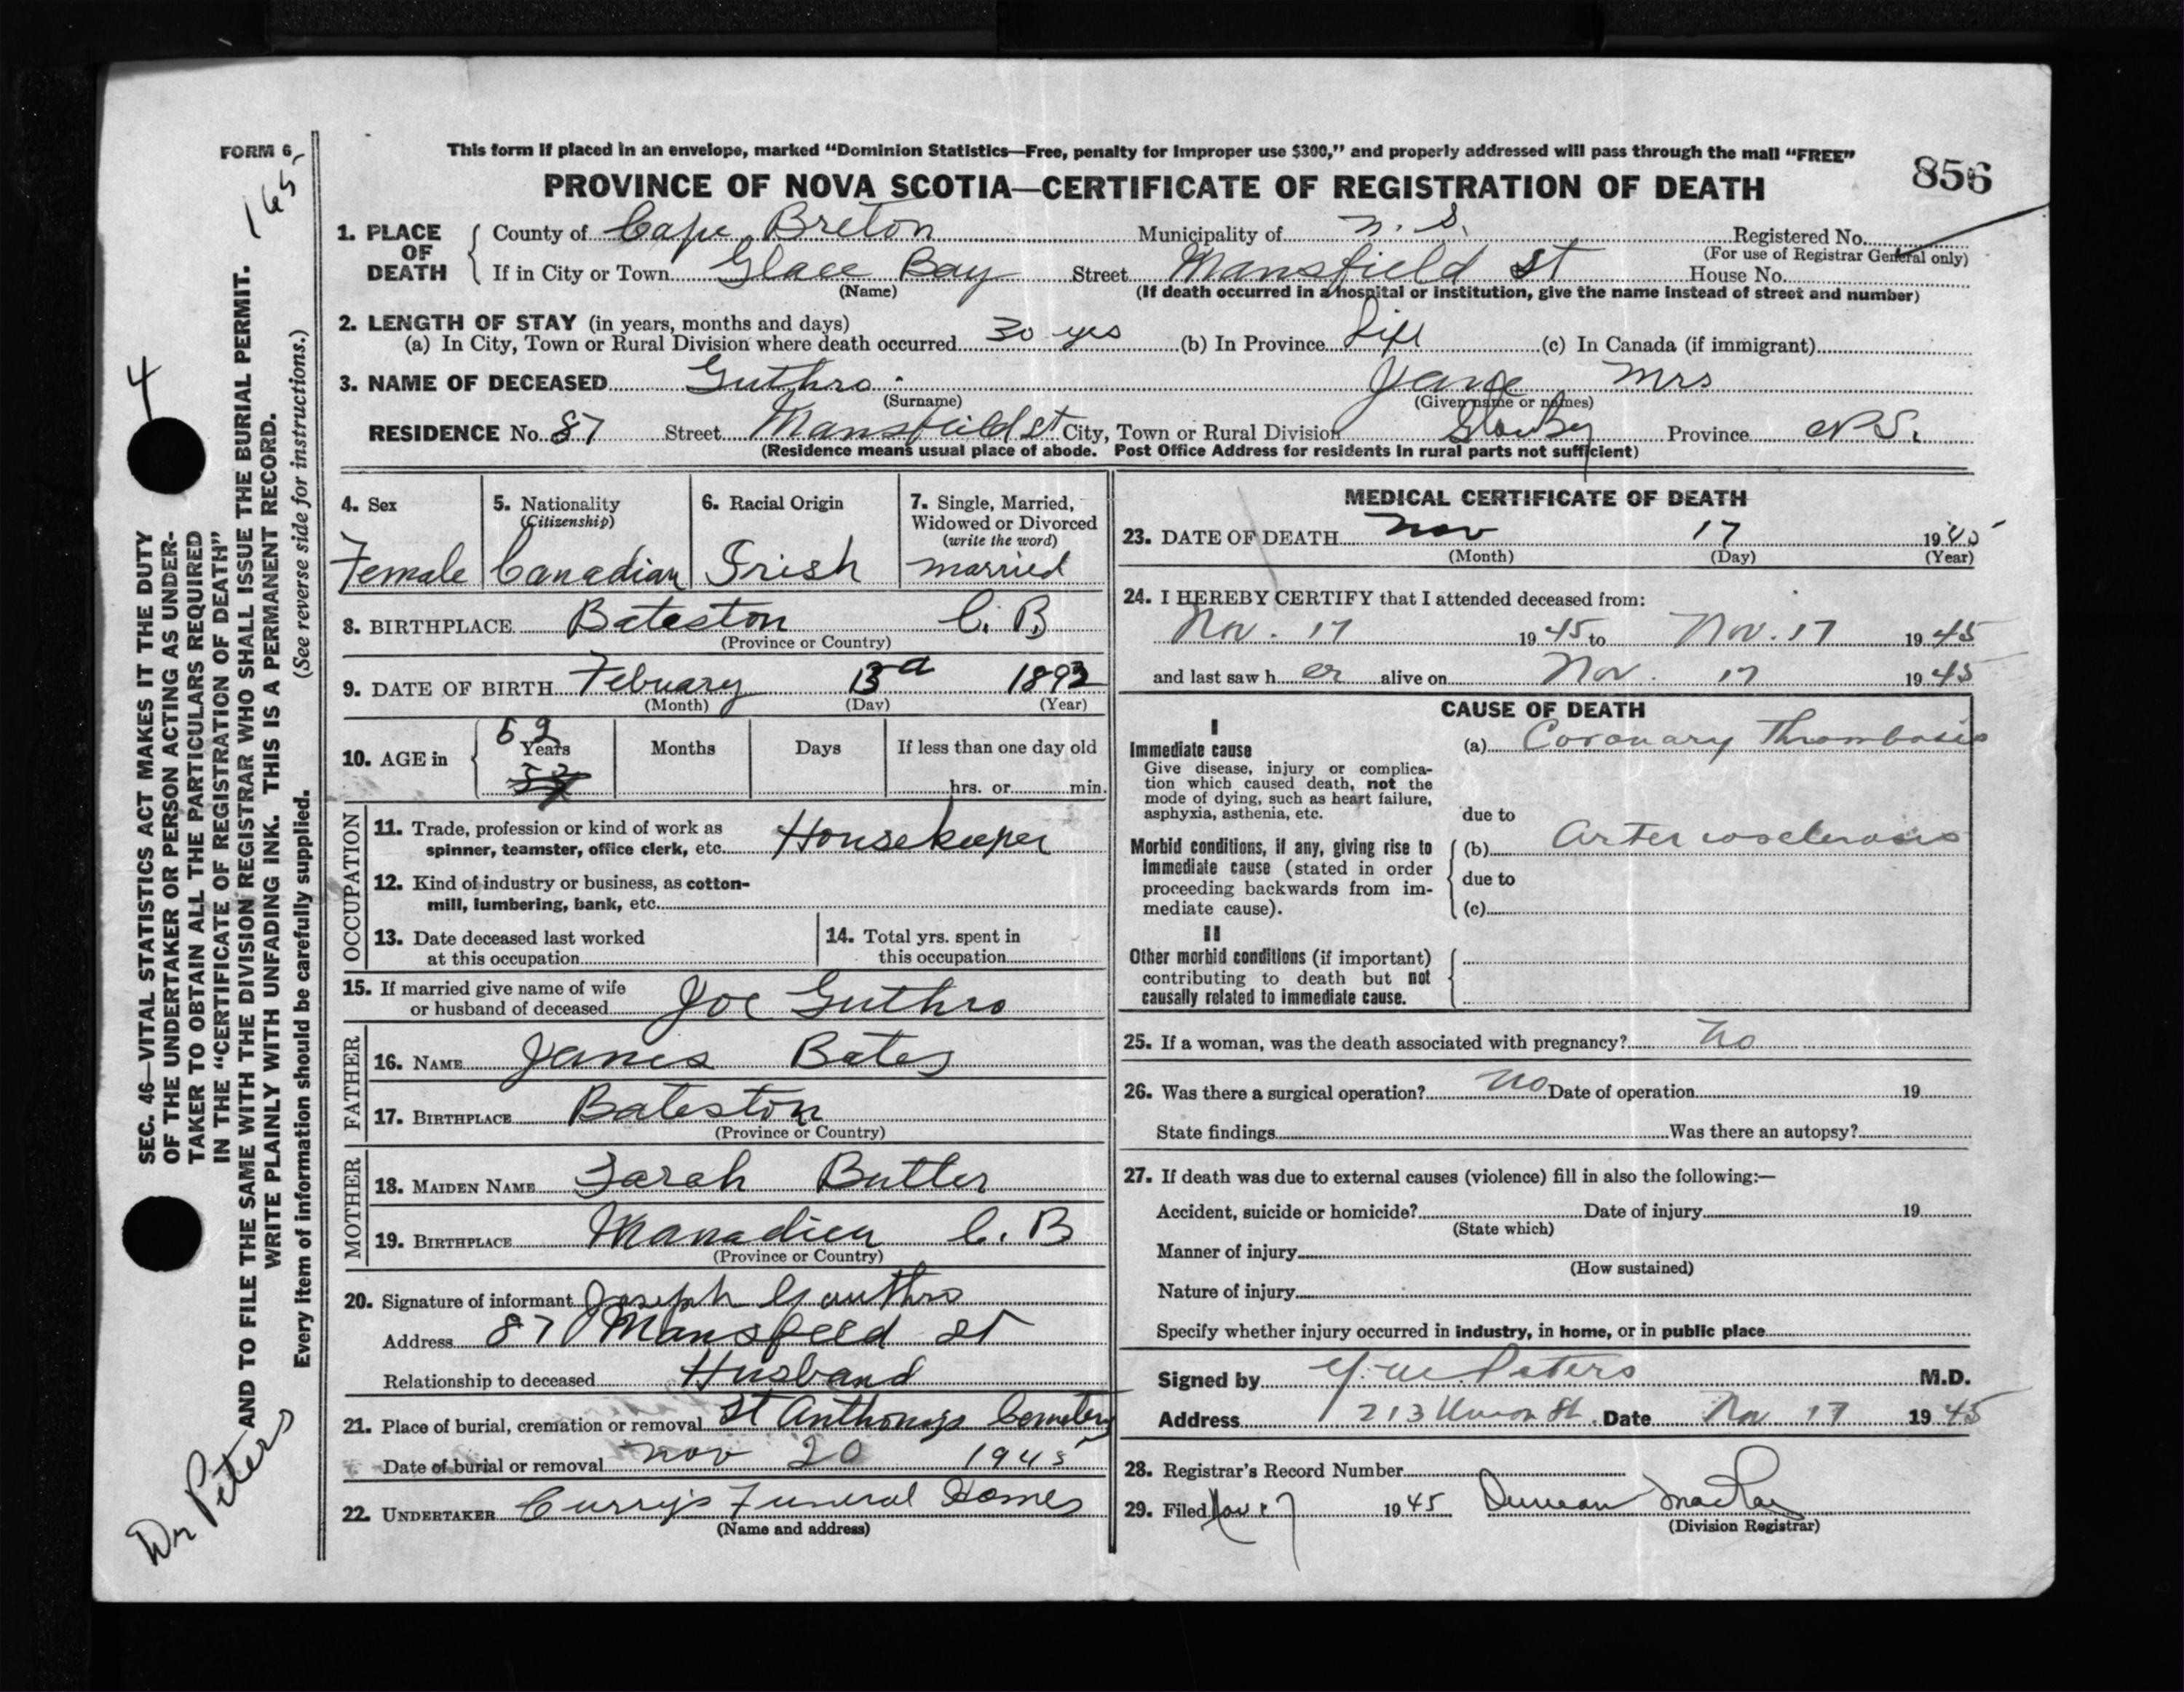 FORM 6
165
This form if placed in an envelope, marked “Dominion Statistics—Free, penalty for improper use $300,” and properly addressed will pass through the mail “FREE”
PROVINCE OF NOVA SCOTIA—CERTIFICATE OF REGISTRATION OF DEATH
856
1. PLACE OF DEATH
County of Cape Breton Municipality of N. S. Registered No.
(For use of Registrar General only)
If in City or Town Glace Bay Street Mansfield St House No.
(Name) (If death occurred in a hospital or institution, give the name instead of street and number)
2. LENGTH OF STAY (in years, months and days)
(a) In City, Town or Rural Division where death occurred 30 yrs (b) In Province Life (c) In Canada (if immigrant)
3. NAME OF DECEASED Guthro Mrs
(Surname) (Given name or names)
RESIDENCE No. 87 Street Mansfield St City, Town or Rural Division Province N.S.
(Residence means usual place of abode. Post Office Address for residents in rural parts not sufficient)
4. Sex
Female
5. Nationality
(Citizenship)
Canadian
6. Racial Origin
Irish
7. Single, Married,
Widowed or Divorced
(write the word)
married
8. BIRTHPLACE Bateston C. B.
(Province or Country)
9. DATE OF BIRTH Febuary 1893
(Month) (Day) (Year)
10. AGE in
52
Years Months Days If less than one day old
hrs. or min.
OCCUPATION
11. Trade, profession or kind of work as
spinner, teamster, office clerk, etc. Housekeeper
12. Kind of industry or business, as cotton-
mill, lumbering, bank, etc.
13. Date deceased last worked
at this occupation
14. Total yrs. spent in
this occupation
15. If married give name of wife
or husband of deceased Joe Guthro
FATHER
16. NAME James Bates
17. BIRTHPLACE Bateston
(Province or Country)
MOTHER
18. MAIDEN NAME Sarah Butler
19. BIRTHPLACE Manadieu C. B
(Province or Country)
20. Signature of informant Joseph Gouthro
Address 87 Mansfeed St
Relationship to deceased Husband
21. Place of burial, cremation or removal St Anthonys Cemetery
Date of burial or removal Nov 20 1945
22. UNDERTAKER Curry's Funeral Homes
(Name and address)
MEDICAL CERTIFICATE OF DEATH
23. DATE OF DEATH Nov 17 1945
(Month) (Day) (Year)
24. I HEREBY CERTIFY that I attended deceased from:
Nov. 17 1945 to Nov. 17 1945
and last saw her alive on Nov. 17 1945
CAUSE OF DEATH
I
Immediate cause
Give disease, injury or complica-
tion which caused death, not the
mode of dying, such as heart failure,
asphyxia, asthenia, etc.
(a) Coronary Thrombosis
due to
Morbid conditions, if any, giving rise to
immediate cause (stated in order
proceeding backwards from im-
mediate cause).
(b) Arteriosclerosis
due to
(c)
II
Other morbid conditions (if important)
contributing to death but not
causally related to immediate cause.
25. If a woman, was the death associated with pregnancy? No
26. Was there a surgical operation? No Date of operation 19
State findings Was there an autopsy?
27. If death was due to external causes (violence) fill in also the following:—
Accident, suicide or homicide? Date of injury 19
(State which)
Manner of injury
(How sustained)
Nature of injury
Specify whether injury occurred in industry, in home, or in public place
Signed by Peters M.D.
Address 213 Union St. Date Nov 17 1945
28. Registrar's Record Number
29. Filed Nov 1945 Duncan
(Division Registrar)
4
SEC. 46—VITAL STATISTICS ACT MAKES IT THE DUTY
OF THE UNDERTAKER OR PERSON ACTING AS UNDER-
TAKER TO OBTAIN ALL THE PARTICULARS REQUIRED
IN THE “CERTIFICATE OF REGISTRATION OF DEATH”
AND TO FILE THE SAME WITH THE DIVISION REGISTRAR WHO SHALL ISSUE THE BURIAL PERMIT.
WRITE PLAINLY WITH UNFADING INK. THIS IS A PERMANENT RECORD.
Every item of information should be carefully supplied. (See reverse side for instructions.)
Dr Peters